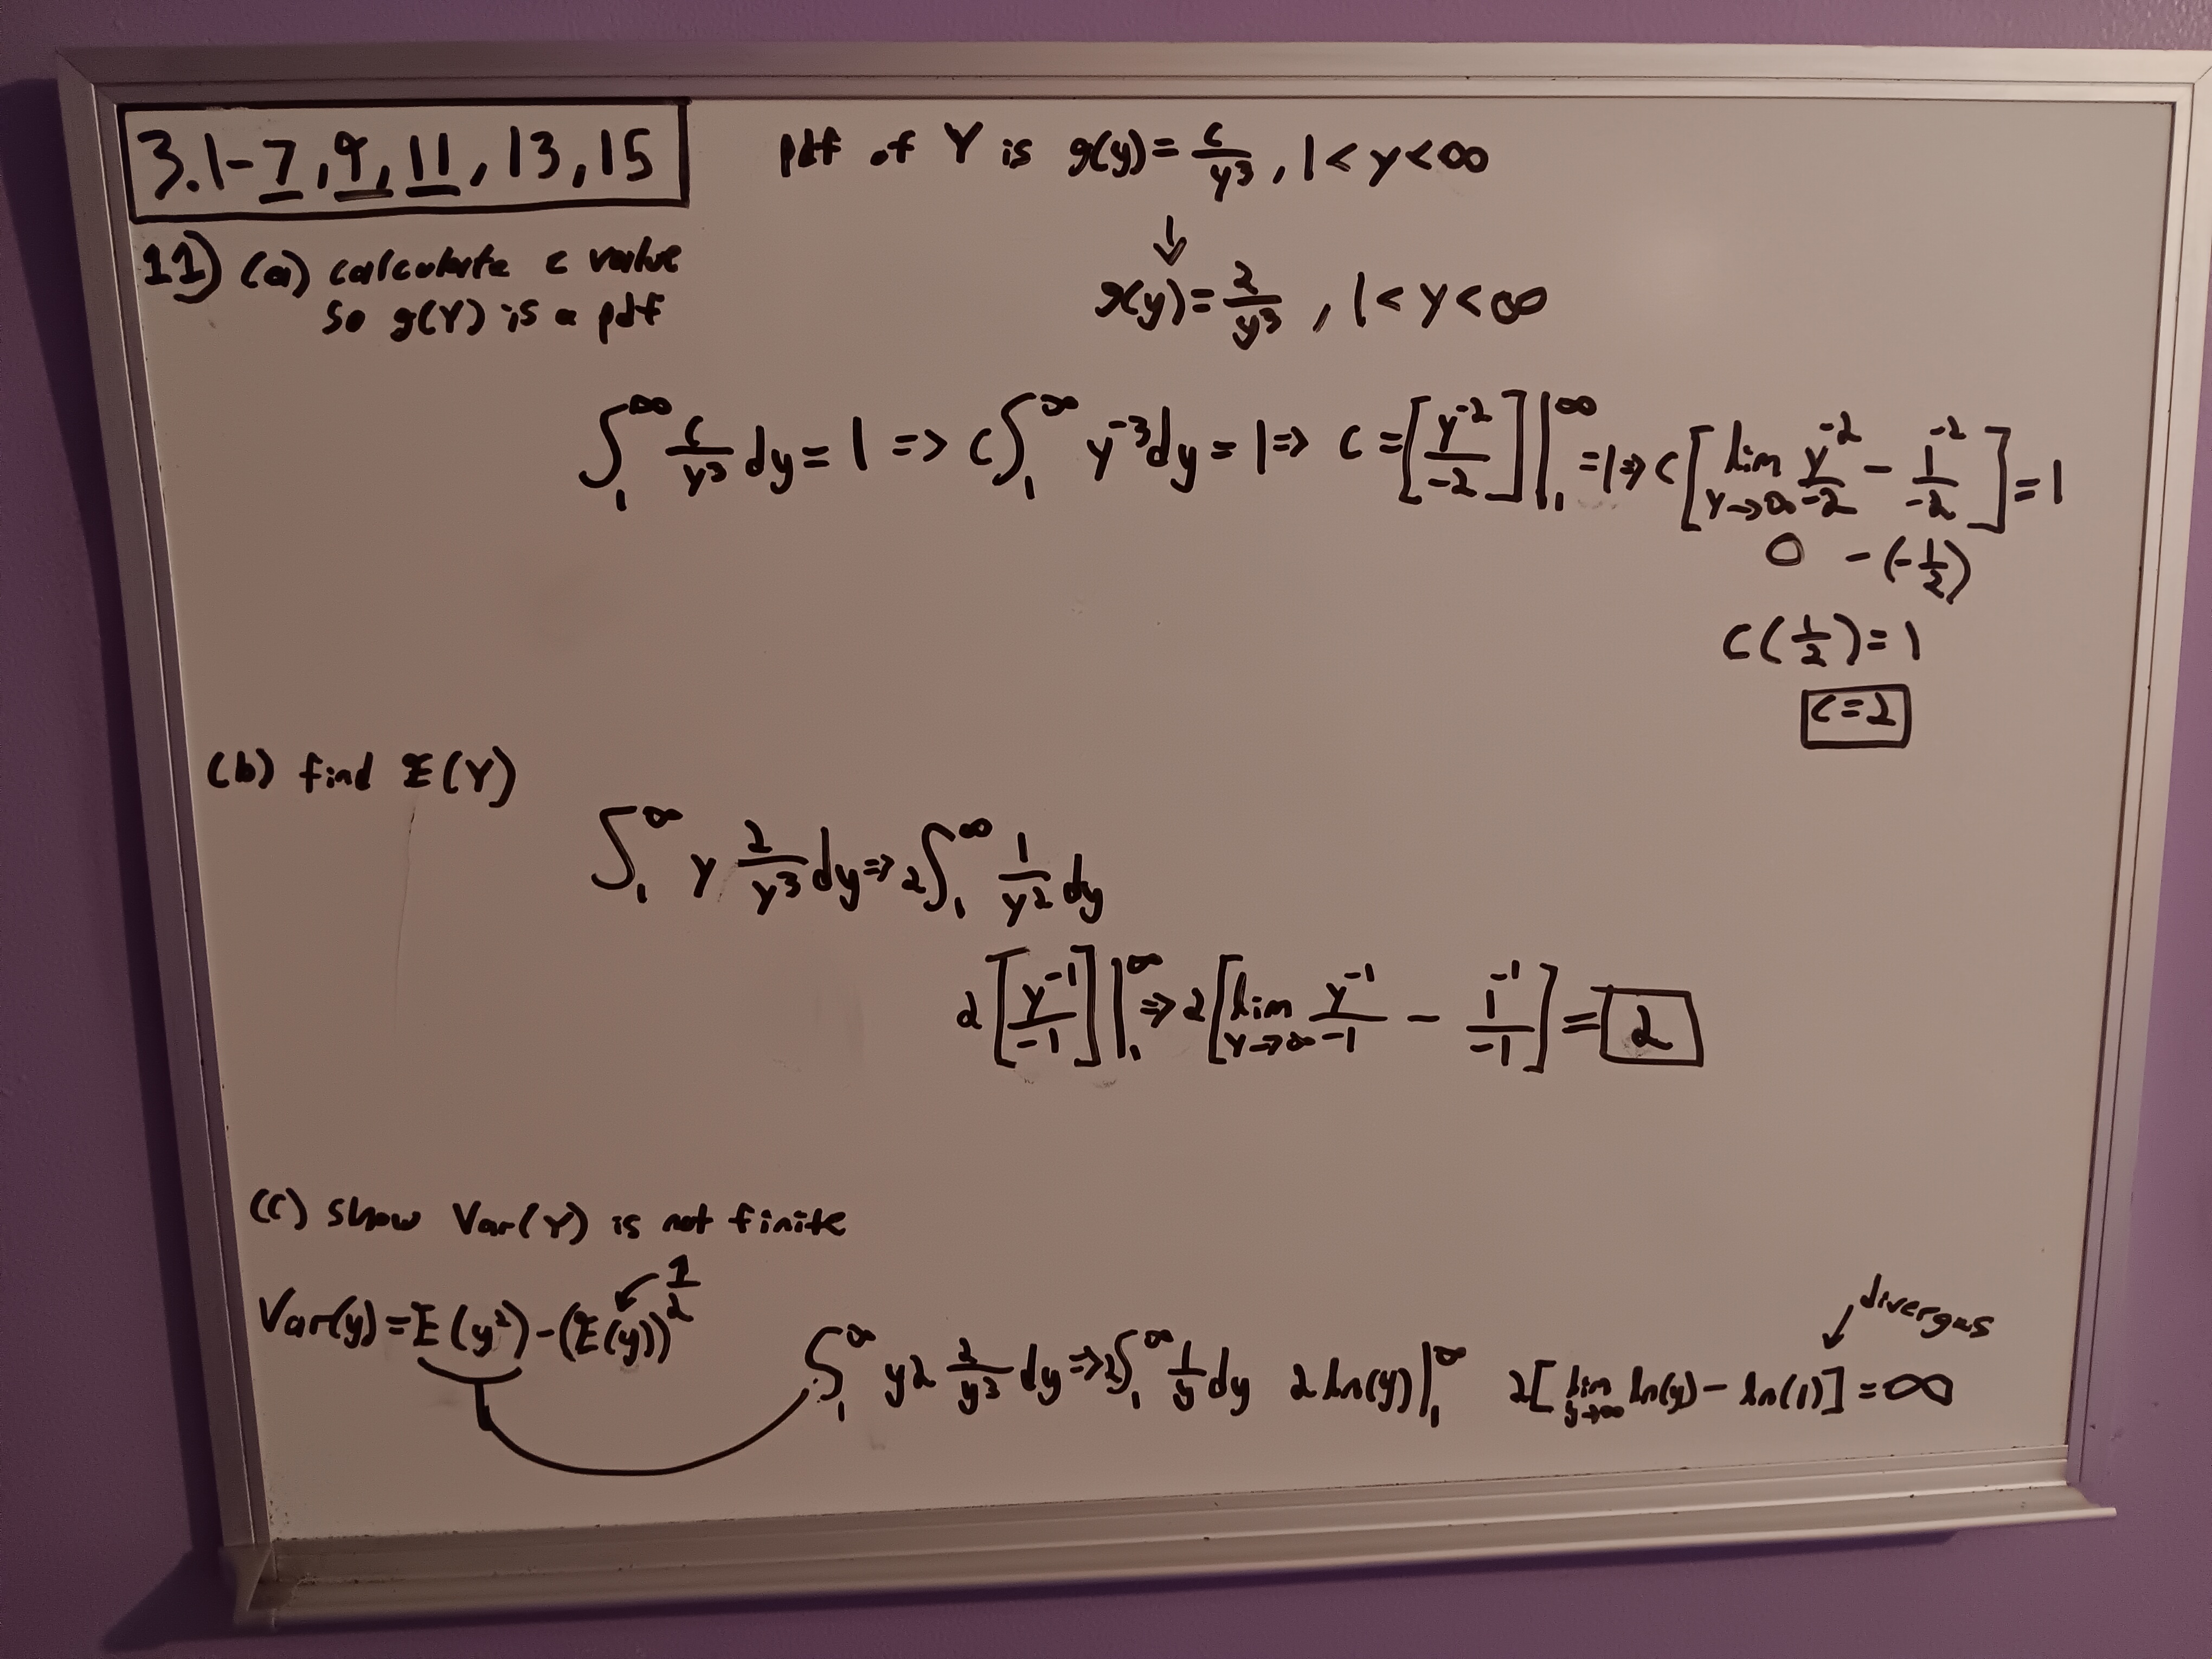 3.1-7, 9, 11, 13, 15
pdf of Y is g(y) = c/y³, 1 < y < ∞
↓
g(y) = 2/y³, 1 < y < ∞
11) (a) calculate c value
so g(Y) is a pdf
∫₁^∞ c/y³ dy = 1 => c∫₁^∞ y⁻³dy = 1 => c = [y⁻²/-2]|₁^∞ = 1 => c[lim y→∞ y⁻²/-2 - 1⁻²/-2] = 1
0 - (-1/2)
c(1/2) = 1
c = 2
(b) find E(Y)
∫₁^∞ y 2/y³ dy => 2∫₁^∞ 1/y² dy
2[y⁻¹/-1]|₁^∞ => 2[lim y→∞ y⁻¹/-1 - 1⁻¹/-1] = 2
(c) show Var(Y) is not finite
Var(y) = E(y²) - (E(y))² ← 1/2
∫₁^∞ y2 2/y³ dy => 2∫₁^∞ 1/y dy 2 ln(y)|₁^∞ 2[lim y→∞ ln(y) - ln(1)] = ∞
↓ diverges